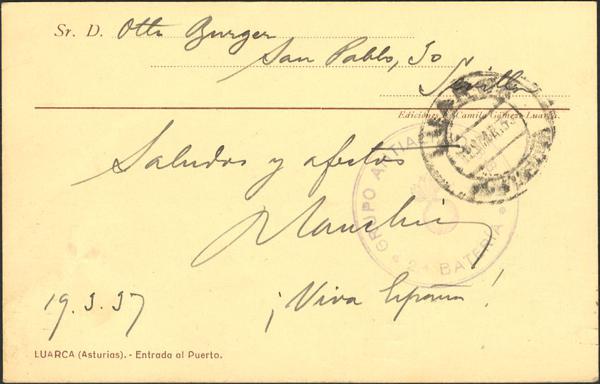 Sr. D. Otto Burger
San Pablo, 30
Sevilla
Ediciones Camilo Gómez-Luarca.
Saludos y afectos
GRUPO ANTIA
2ª BATERIA
19.3.37
¡Viva España!
LUARCA (Asturias). - Entrada al Puerto.